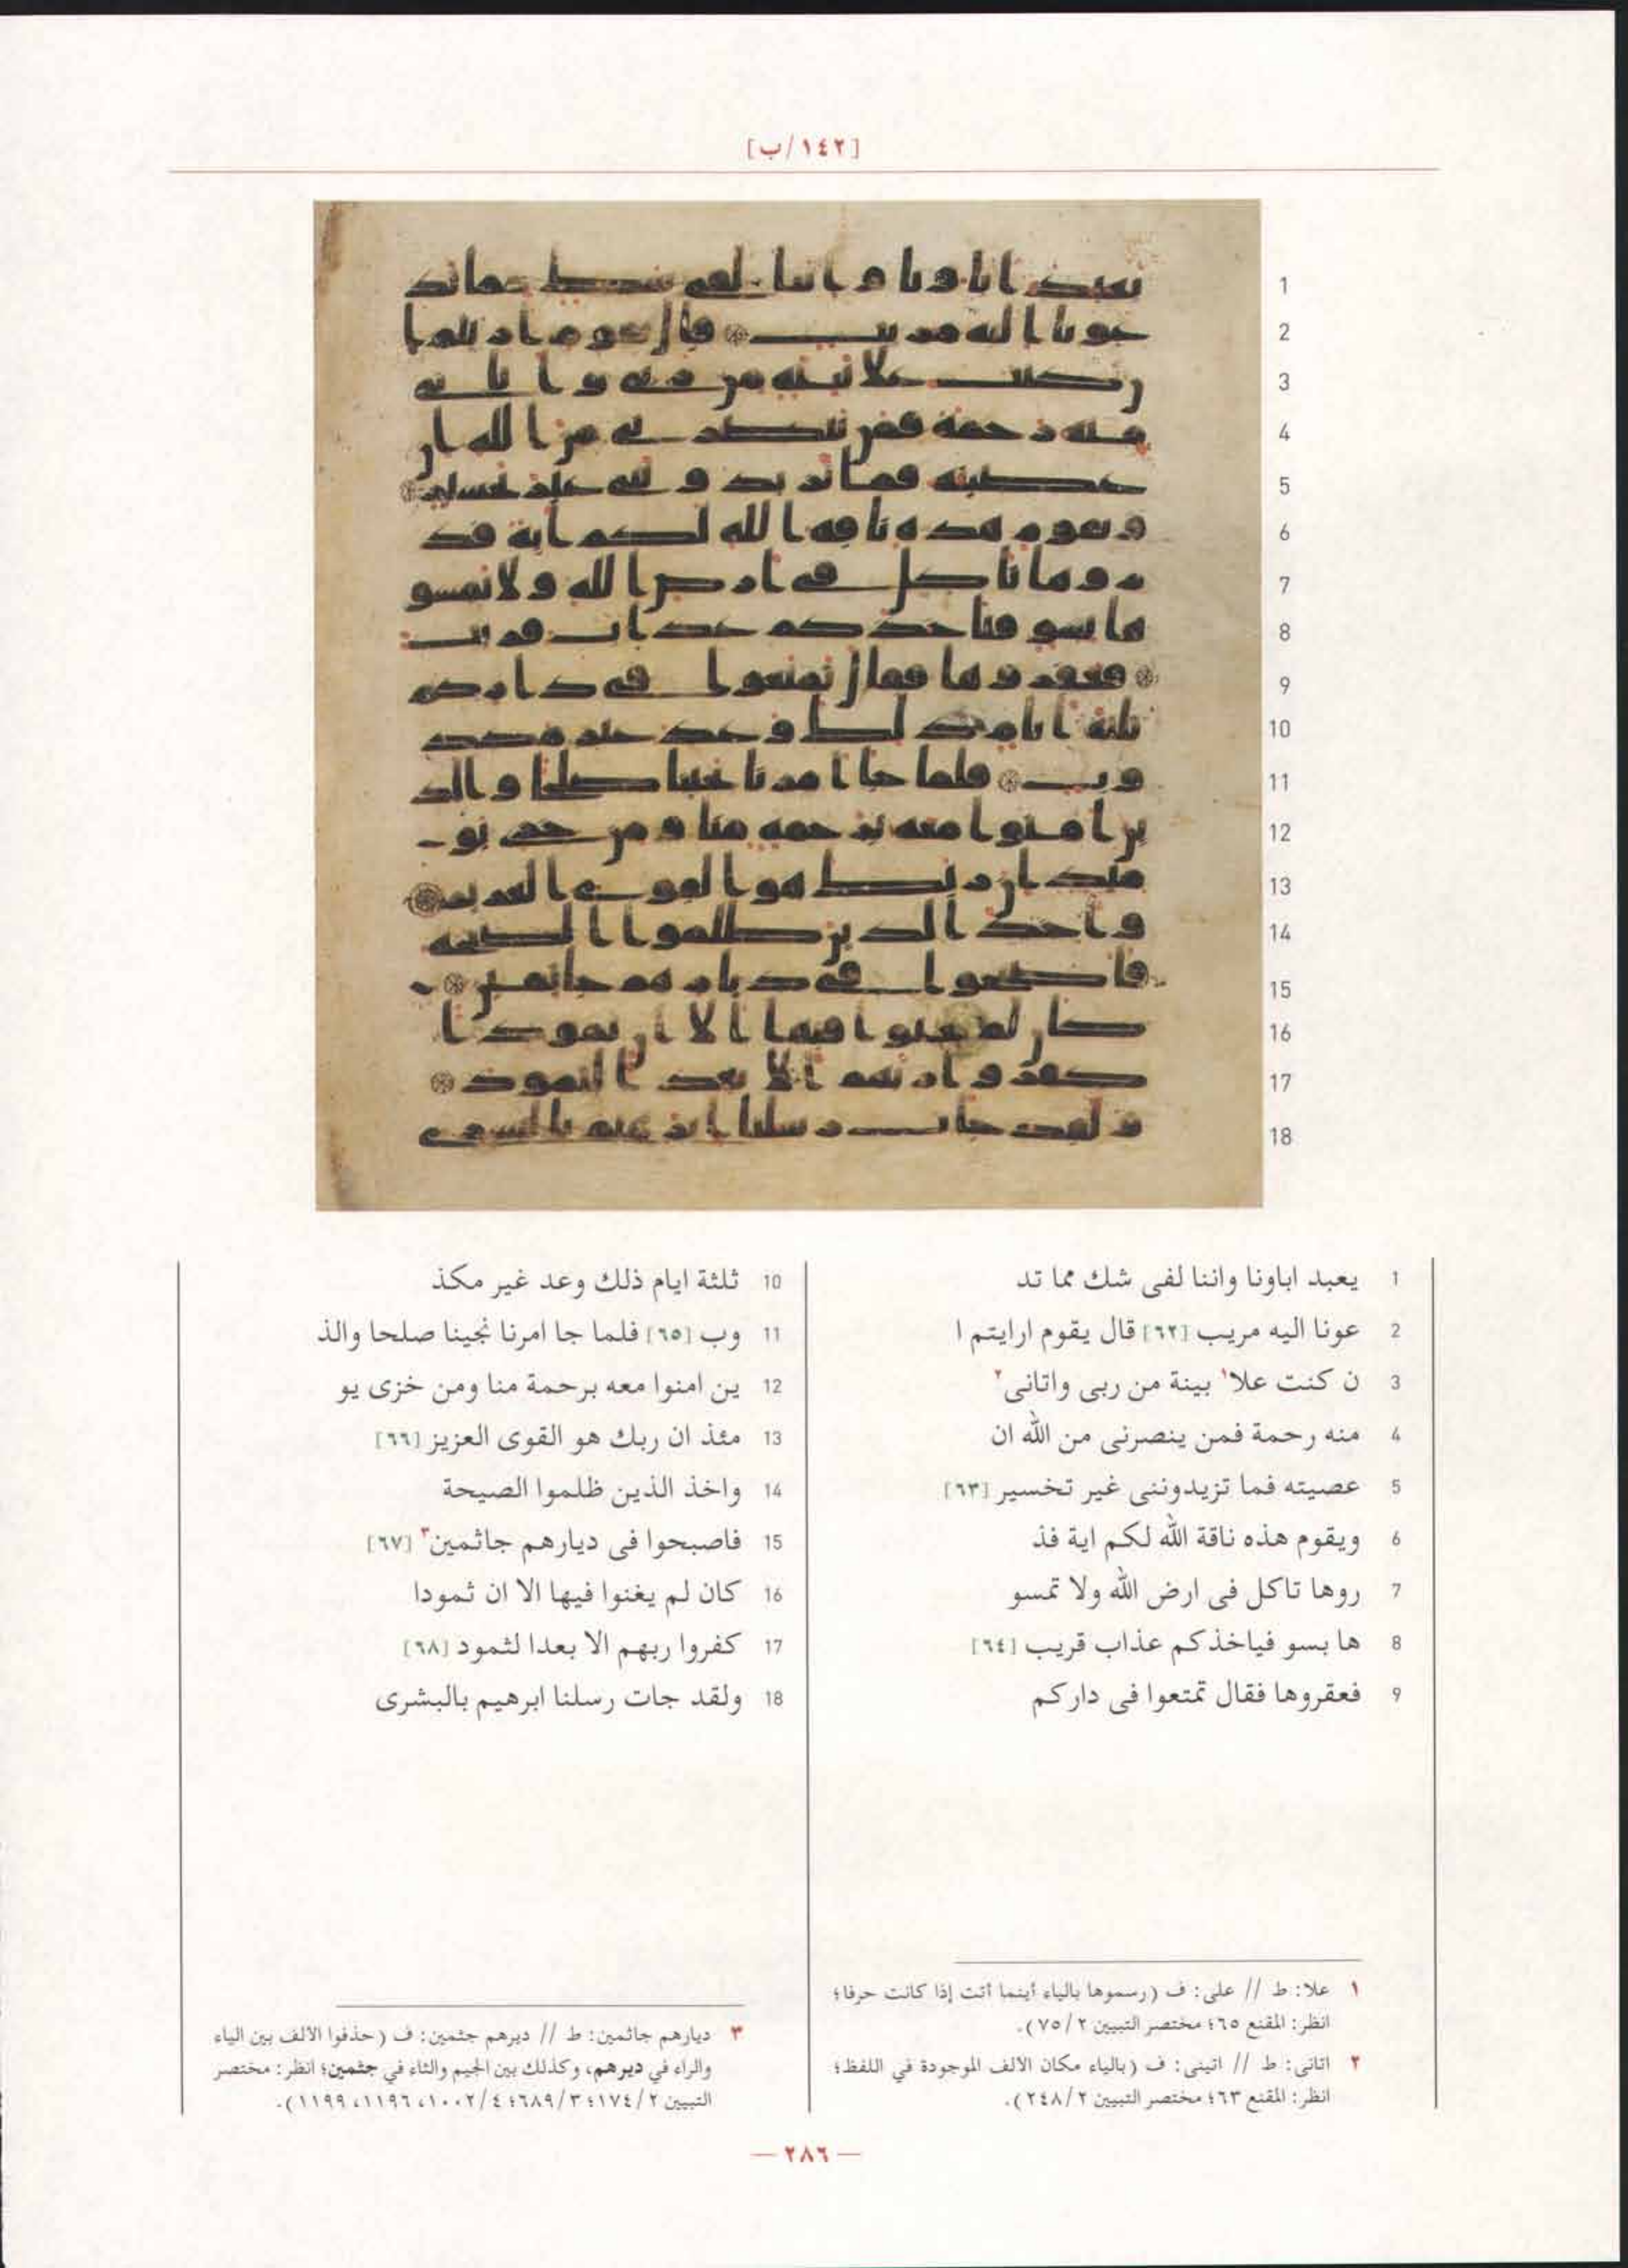 [١٤٢/ب]
1 يعبد اباونا واننا لفى شك مما تد
2 عونا اليه مريب [٦٢] قال يقوم ارايتم ا
3 ن كنت علا١ بينة من ربى واتانى٢
4 منه رحمة فمن ينصرنى من الله ان
5 عصيته فما تزيدوننى غير تخسير [٦٣]
6 ويقوم هذه ناقة الله لكم اية فذ
7 روها تاكل فى ارض الله ولا تمسو
8 ها بسو فياخذكم عذاب قريب [٦٤]
9 فعقروها فقال تمتعوا فى داركم
10 ثلثة ايام ذلك وعد غير مكذ
11 وب [٦٥] فلما جا امرنا نجينا صلحا والذ
12 ين امنوا معه برحمة منا ومن خزى يو
13 مئذ ان ربك هو القوى العزيز [٦٦]
14 واخذ الذين ظلموا الصيحة
15 فاصبحوا فى ديارهم جاثمين٣ [٦٧]
16 كان لم يغنوا فيها الا ان ثمودا
17 كفروا ربهم الا بعدا لثمود [٦٨]
18 ولقد جات رسلنا ابرهيم بالبشرى
١ علا: ط // على: ف (رسموها بالياء أينما أتت إذا كانت حرفا؛
انظر: المقنع ٦٥؛ مختصر التبيين ٢/ ٧٥).
٢ اتانى: ط // اتينى: ف (بالياء مكان الألف الموجودة في اللفظ؛
انظر: المقنع ٦٣؛ مختصر التبيين ٢/ ٢٤٨).
٣ ديارهم جاثمين: ط // ديرهم جثمين: ف (حذفوا الألف بين الياء
والراء في ديرهم، وكذلك بين الجيم والثاء في جثمين؛ انظر: مختصر
التبيين ٢/ ١٧٤؛ ٣/ ٦٨٩؛ ٤/ ١٠٠٢، ١١٩٦، ١١٩٩).
— ٢٨٦ —